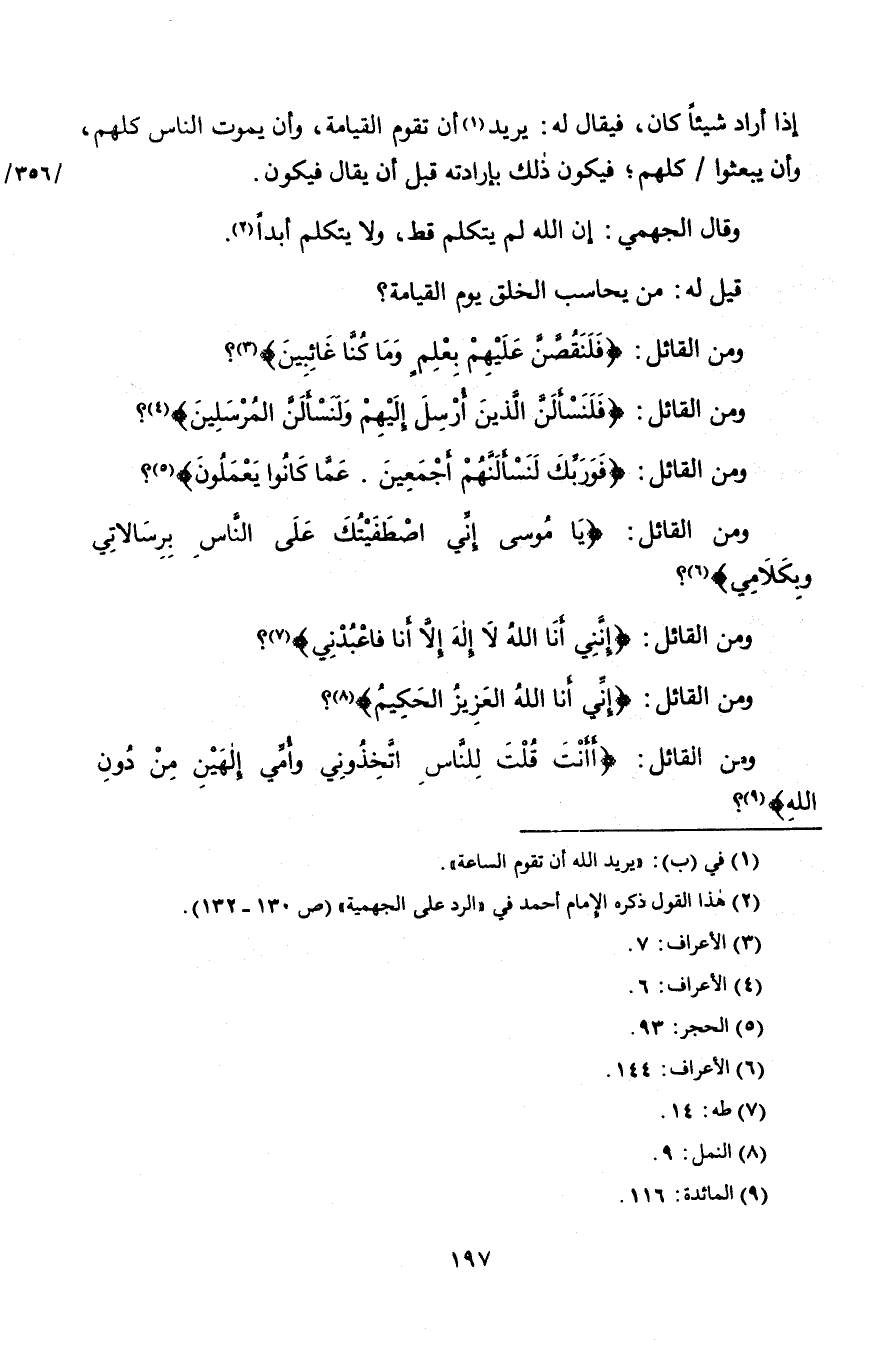 إذا أراد شيئاً كان، فيقال له: يريد(١) أن تقوم القيامة، وأن يموت الناس كلهم،
وأن يبعثوا / كلهم؛ فيكون ذٰلك بإرادته قبل أن يقال فيكون. /٣٥٦/
وقال الجهمي: إن الله لم يتكلم قط، ولا يتكلم أبداً(٢).
قيل له: من يحاسب الخلق يوم القيامة؟
ومن القائل: ﴿فَلَنَقُصَّنَّ عَلَيْهِمْ بِعْلِمٍ وَمَا كُنَّا غَائِبِينَ﴾(٣)؟
ومن القائل: ﴿فَلَنَسْأَلَنَّ الَّذينَ أُرْسِلَ إِلَيْهِمْ وَلَنَسْأَلَنَّ المُرْسَلِينَ﴾(٤)؟
ومن القائل: ﴿فَوَرَبِّكَ لَنَسْأَلَنَّهُمْ أَجْمَعِينَ . عَمَّا كَانُوا يَعْمَلُونَ﴾(٥)؟
ومن القائل: ﴿يَا مُوسى إِنِّي اصْطَفَيْتُكَ عَلَى النَّاسِ بِرِسَالاتِي
وبِكَلَامِي﴾(٦)؟
ومن القائل: ﴿إِنَّنِي أَنَا اللهُ لَا إِلٰهَ إِلَّا أَنا فاعْبُدْنِي﴾(٧)؟
ومن القائل: ﴿إِنِّي أَنا اللهُ العَزِيزُ الحَكِيمُ﴾(٨)؟
ومن القائل: ﴿أَأَنْتَ قُلْتَ لِلنَّاسِ اتَّخِذُونِي وأُمِّي إِلٰهَيْنِ مِنْ دُونِ
اللهِ﴾(٩)؟
(١) في (ب): «يريد الله أن تقوم الساعة».
(٢) هٰذا القول ذكره الإمام أحمد في «الرد على الجهمية» (ص ١٣٠ - ١٣٢).
(٣) الأعراف: ٧.
(٤) الأعراف: ٦.
(٥) الحجر: ٩٣.
(٦) الأعراف: ١٤٤.
(٧) طه: ١٤.
(٨) النمل: ٩.
(٩) المائدة: ١١٦.
١٩٧